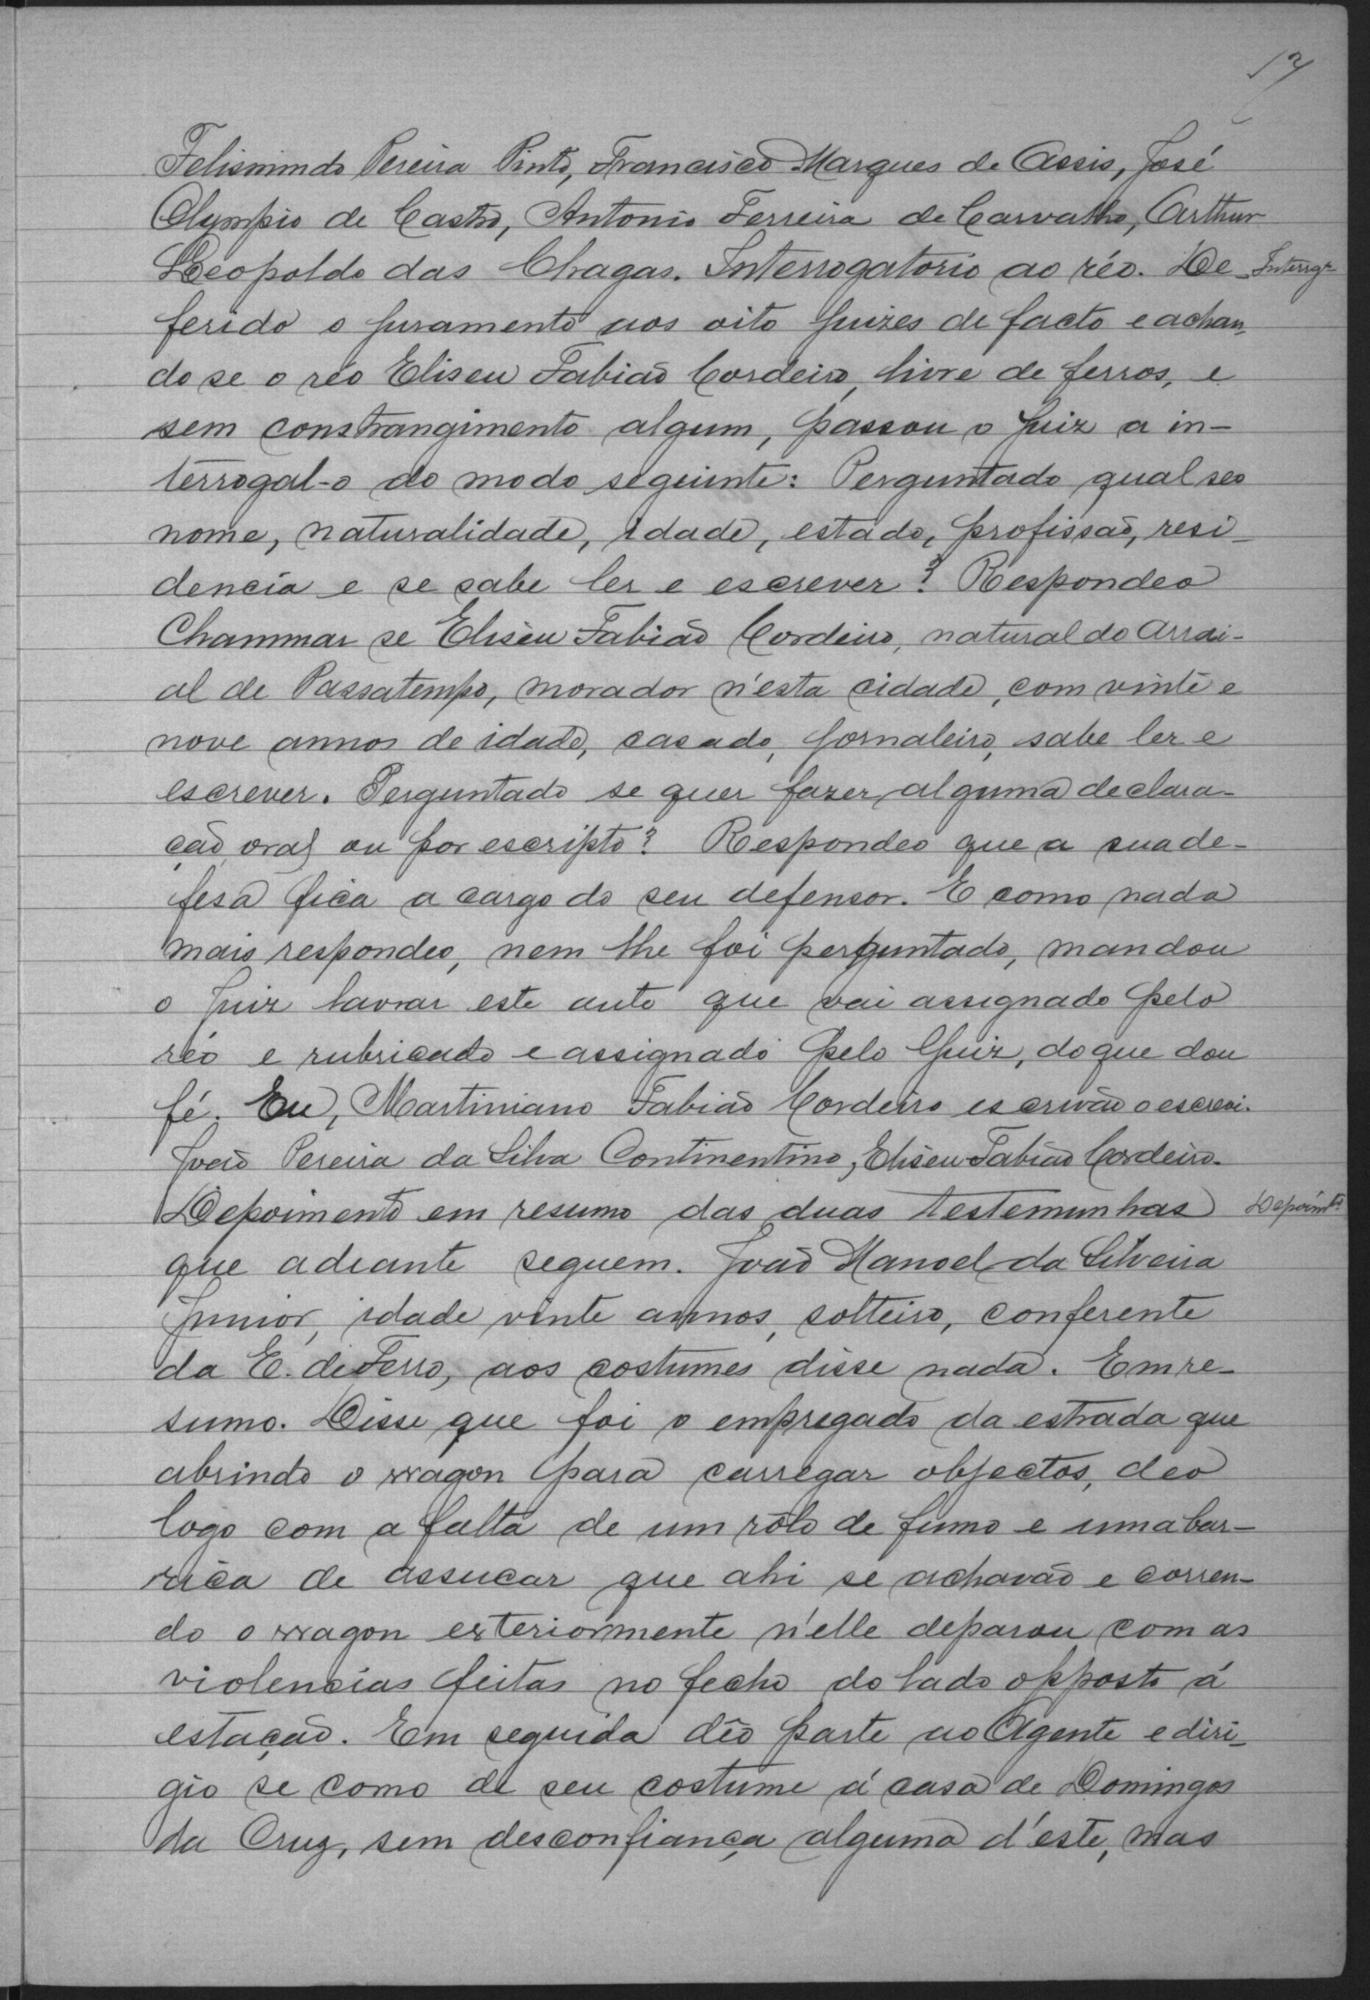 17
Felismindo Pereira Pinto, Francisco Marques de Assis, José
Olympio de Castro, Antonio Ferreira de Carvalho, Arthur
Leopoldo das Chagas. Interrogatorio ao réo. De-
Interrgº
ferido o juramento aos oito juizes de facto e achan-
do se o réo Eliseu Fabião Cordeiro, livre de ferros, e
sem constrangimento algum, passou o juiz a in-
terrogal-o do modo seguinte: Perguntado qual seo
nome, naturalidade, idade, estado, profissão, resi-
dencia e se sabe ler e escrever? Respondeo
Chammar se Eliseu Fabião Cordeiro, natural do Arrai-
al de Passatempo, morador n'esta cidade, com vinte e
nove annos de idade, casado, jornaleiro, sabe ler e
escrever. Perguntado se quer fazer alguma declara-
ção oral ou por escripto? Respondeo que a sua de-
fesa fica a cargo do seu defensor. E como nada
mais respondeo, nem lhe foi perguntado, mandou
o Juiz lavrar este auto que vai assignado pelo
réo e rubricado e assignado pelo Juiz, do que dou
fé. Eu, Martiniano Fabião Cordeiro escrivão o escrevi.
João Pereira da Silva Continentino, Eliseu Fabião Cordeiro.
Depoimento em resumo das duas testemunhas
Depoimtº
que adeante seguem. João Manoel da Silveira
Junior, idade vinte annos, solteiro, conferente
da E. de Ferro, aos costumes disse nada. Em re-
sumo. Disse que foi o empregado da estrada que
abrindo o wagon para carregar objectos, deo
logo com a falta de um rôlo de fumo e uma bar-
rica de assucar que ahi se achavão e corren-
do o wagon exteriormente n'elle deparou com as
violencias feitas no fecho do lado opposto á
estação. Em seguida dêo parte ao Agente e diri-
gio se como de seu costume á casa de Domingos
da Cruz, sem desconfiança alguma d'este, mas